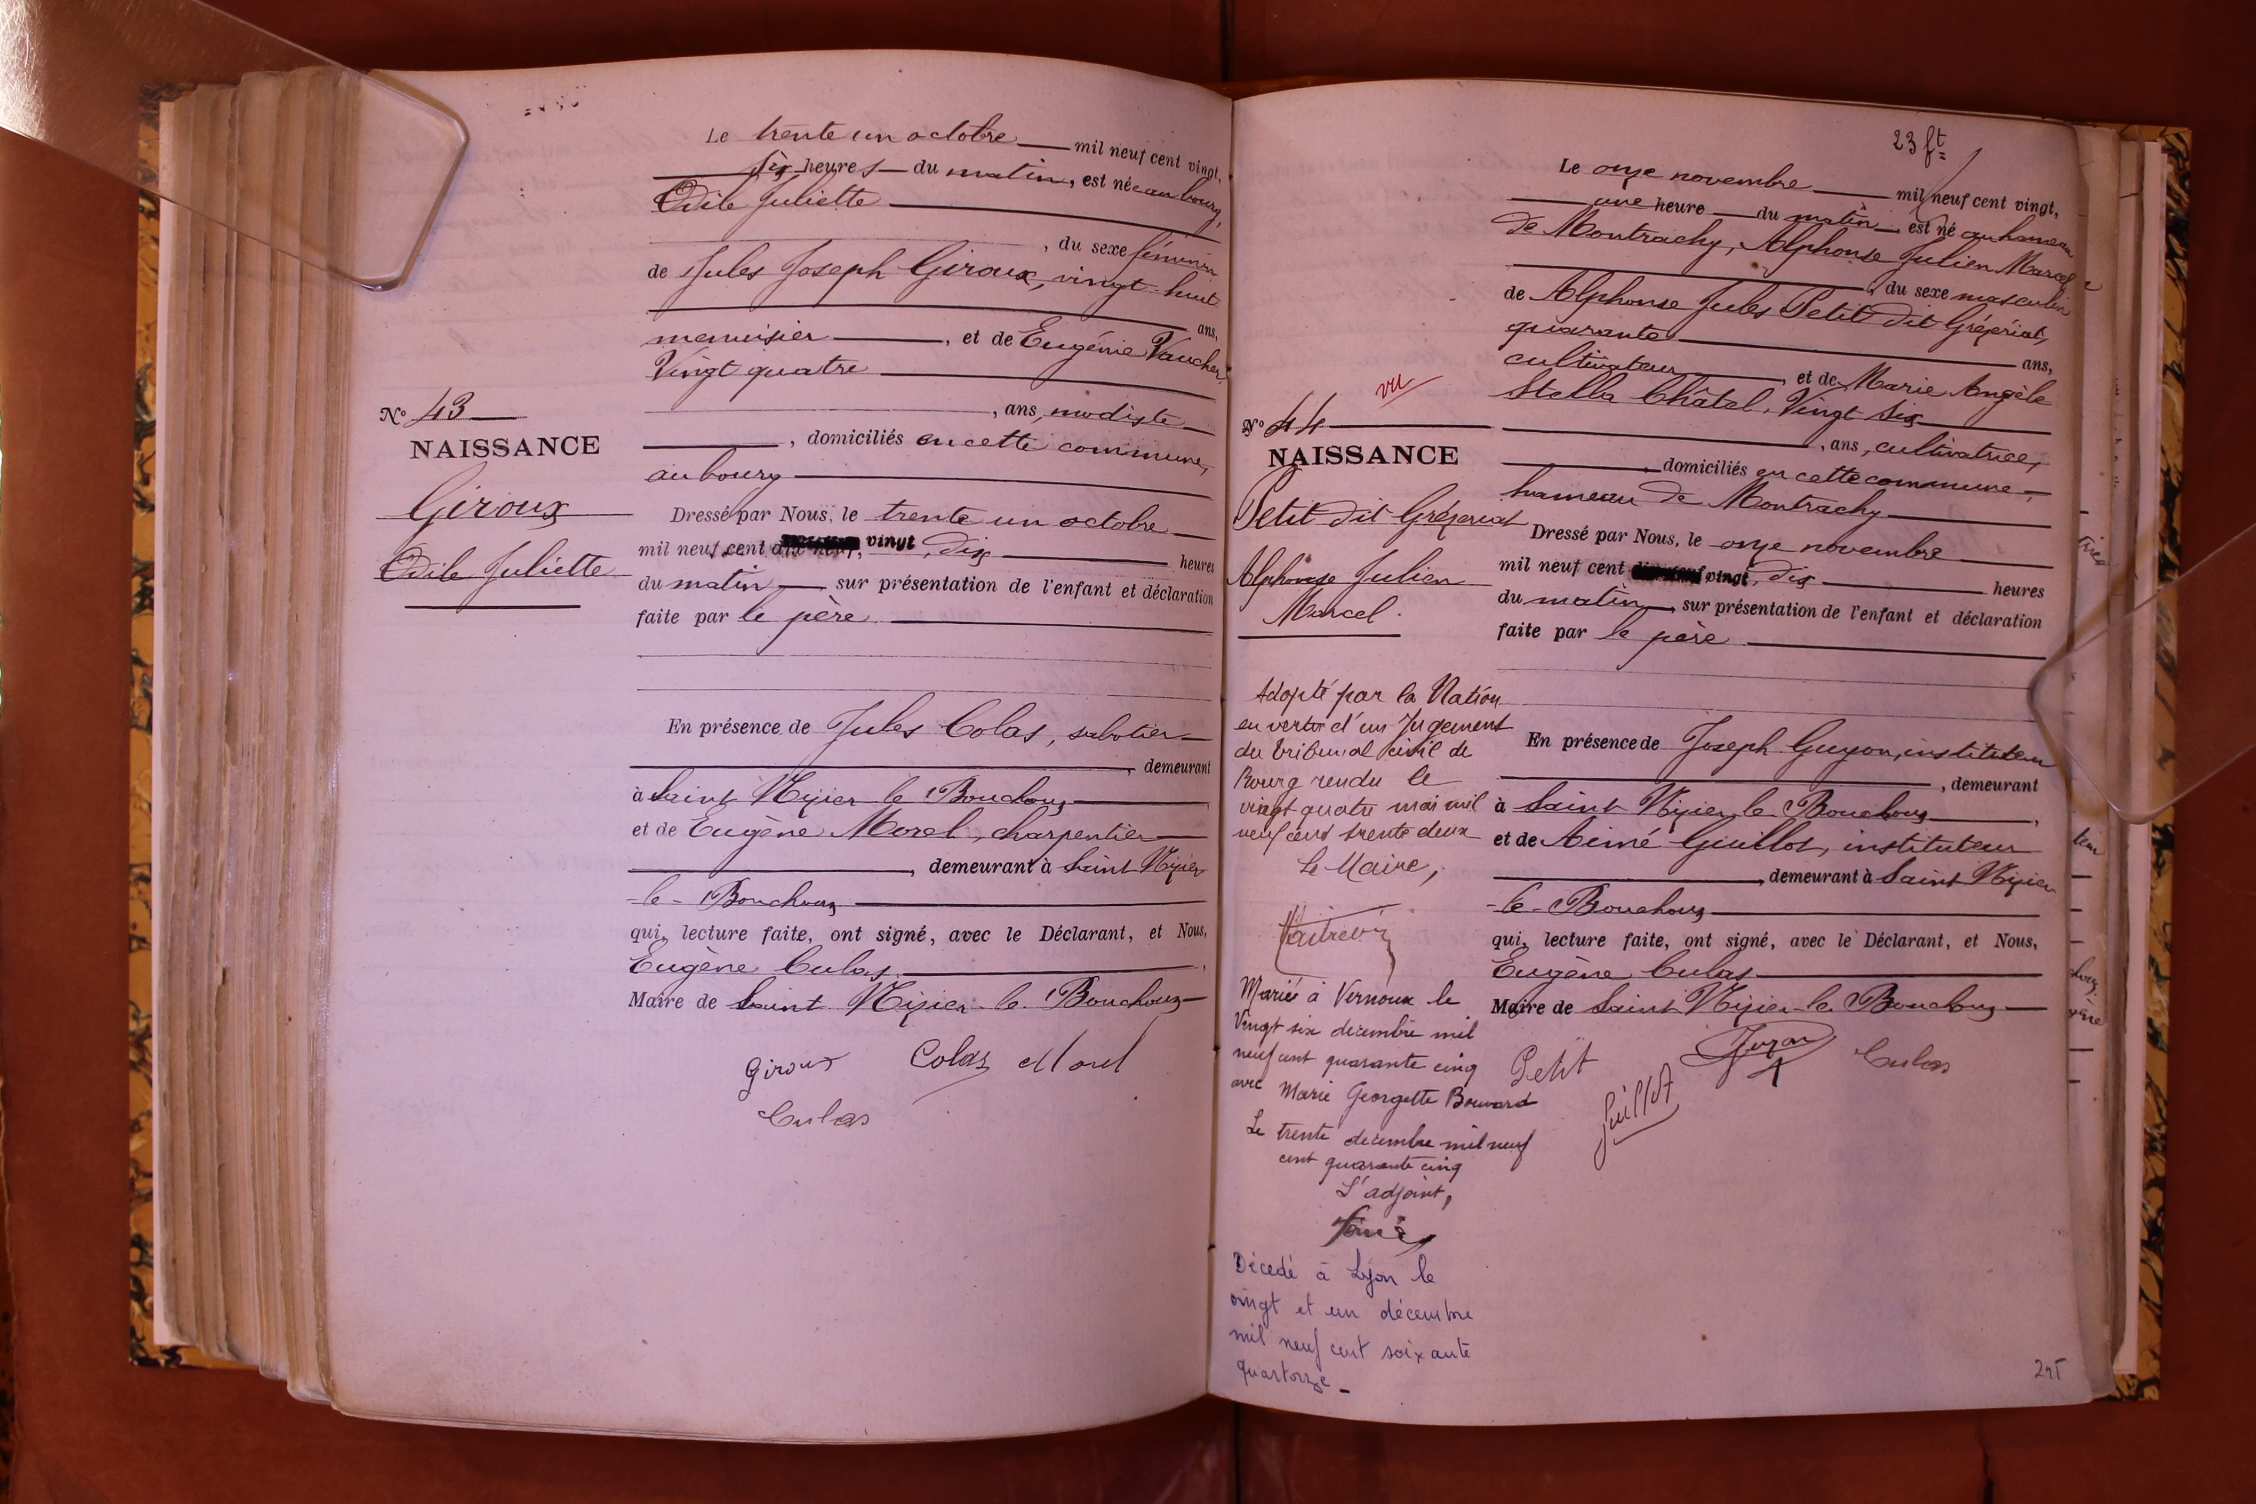 Le trente un octobre mil neuf cent vingt,
six heures du matin, est née au bourg,
Odile Juliette
, du sexe féminin
de Jules Joseph Giroux, vingt-huit
ans,
menuisier, et de Eugénie Vaucher,
Vingt quatre
, ans, modiste
, domiciliés en cette commune,
au bourg
Nº 43
NAISSANCE
Giroux
Odile Juliette
Dressé par Nous, le trente un octobre
mil neuf cent vingt, dix heures
du matin sur présentation de l'enfant et déclaration
faite par le père
En présence de Jules Colas, sabotier
, demeurant
à Saint Nizier le Bouchoux
et de Eugène Morel, charpentier
, demeurant à Saint Nizier
-le-Bouchoux
qui, lecture faite, ont signé, avec le Déclarant, et Nous,
Eugène Culas,
Maire de Saint Nizier-le-Bouchoux
Giroux Colas Morel
Culas
23 ft
Le onze novembre mil neuf cent vingt,
une heure du matin, est né au hameau
de Montrachy, Alphonse Julien Marcel
, du sexe masculin
de Alphonse Jules Petit dit Grézériat,
quarante ans,
cultivateur, et de Marie Angèle
Stella Châtel, Vingt Six
, ans, cultivatrice,
, domiciliés en cette commune,
hameau de Montrachy
vu
Nº 44
NAISSANCE
Petit dit Grézeriat
Alphonse Julien
Marcel.
Dressé par Nous, le onze novembre
mil neuf cent vingt, dix heures
du matin, sur présentation de l'enfant et déclaration
faite par le père
En présence de Joseph Guyon, instituteur
, demeurant
à Saint Nizier-le-Bouchoux,
et de Aimé Guillot, instituteur
, demeurant à Saint Nizier
-le-Bouchoux
qui, lecture faite, ont signé, avec le Déclarant, et Nous,
Eugène Culas
Maire de Saint Nizier-le-Bouchoux
Petit Guyon Culas
Guillot
Adopté par la Nation
en vertu d'un Jugement
du tribunal civil de
Bourg rendu le
vingt quatre mai mil
neuf cent trente deux
Le Maire,
Marié à Vernoux le
Vingt six décembre mil
neuf cent quarante cinq
avec Marie Georgette Bouvard
Le trente décembre mil neuf
cent quarante cinq
L'adjoint,
Décédé à Lyon le
vingt et un décembre
mil neuf cent soixante
quatorze